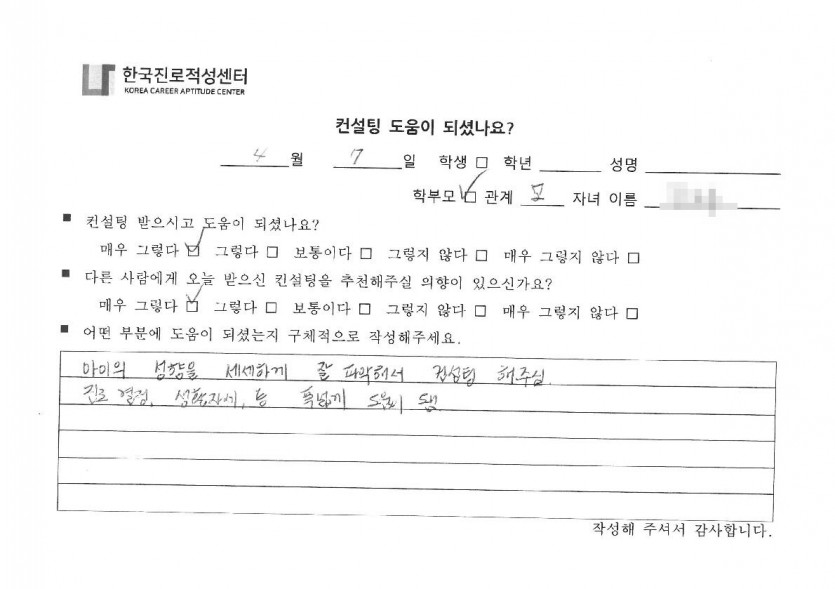 한국진로적성센터
KOREA CAREER APTITUDE CENTER
컨설팅 도움이 되셨나요?
4 월 7 일 학생 □ 학년 성명
학부모 ☑ 관계 모 자녀 이름
■ 컨설팅 받으시고 도움이 되셨나요?
매우 그렇다 ☑ 그렇다 □ 보통이다 □ 그렇지 않다 □ 매우 그렇지 않다 □
■ 다른 사람에게 오늘 받으신 컨설팅을 추천해주실 의향이 있으신가요?
매우 그렇다 ☑ 그렇다 □ 보통이다 □ 그렇지 않다 □ 매우 그렇지 않다 □
■ 어떤 부분에 도움이 되셨는지 구체적으로 작성해주세요.
아이의 성향을 세세하게 잘 파악해서 컨설팅 해주심.
진로 결정, 등 폭넓게 도움이 됨
작성해 주셔서 감사합니다.